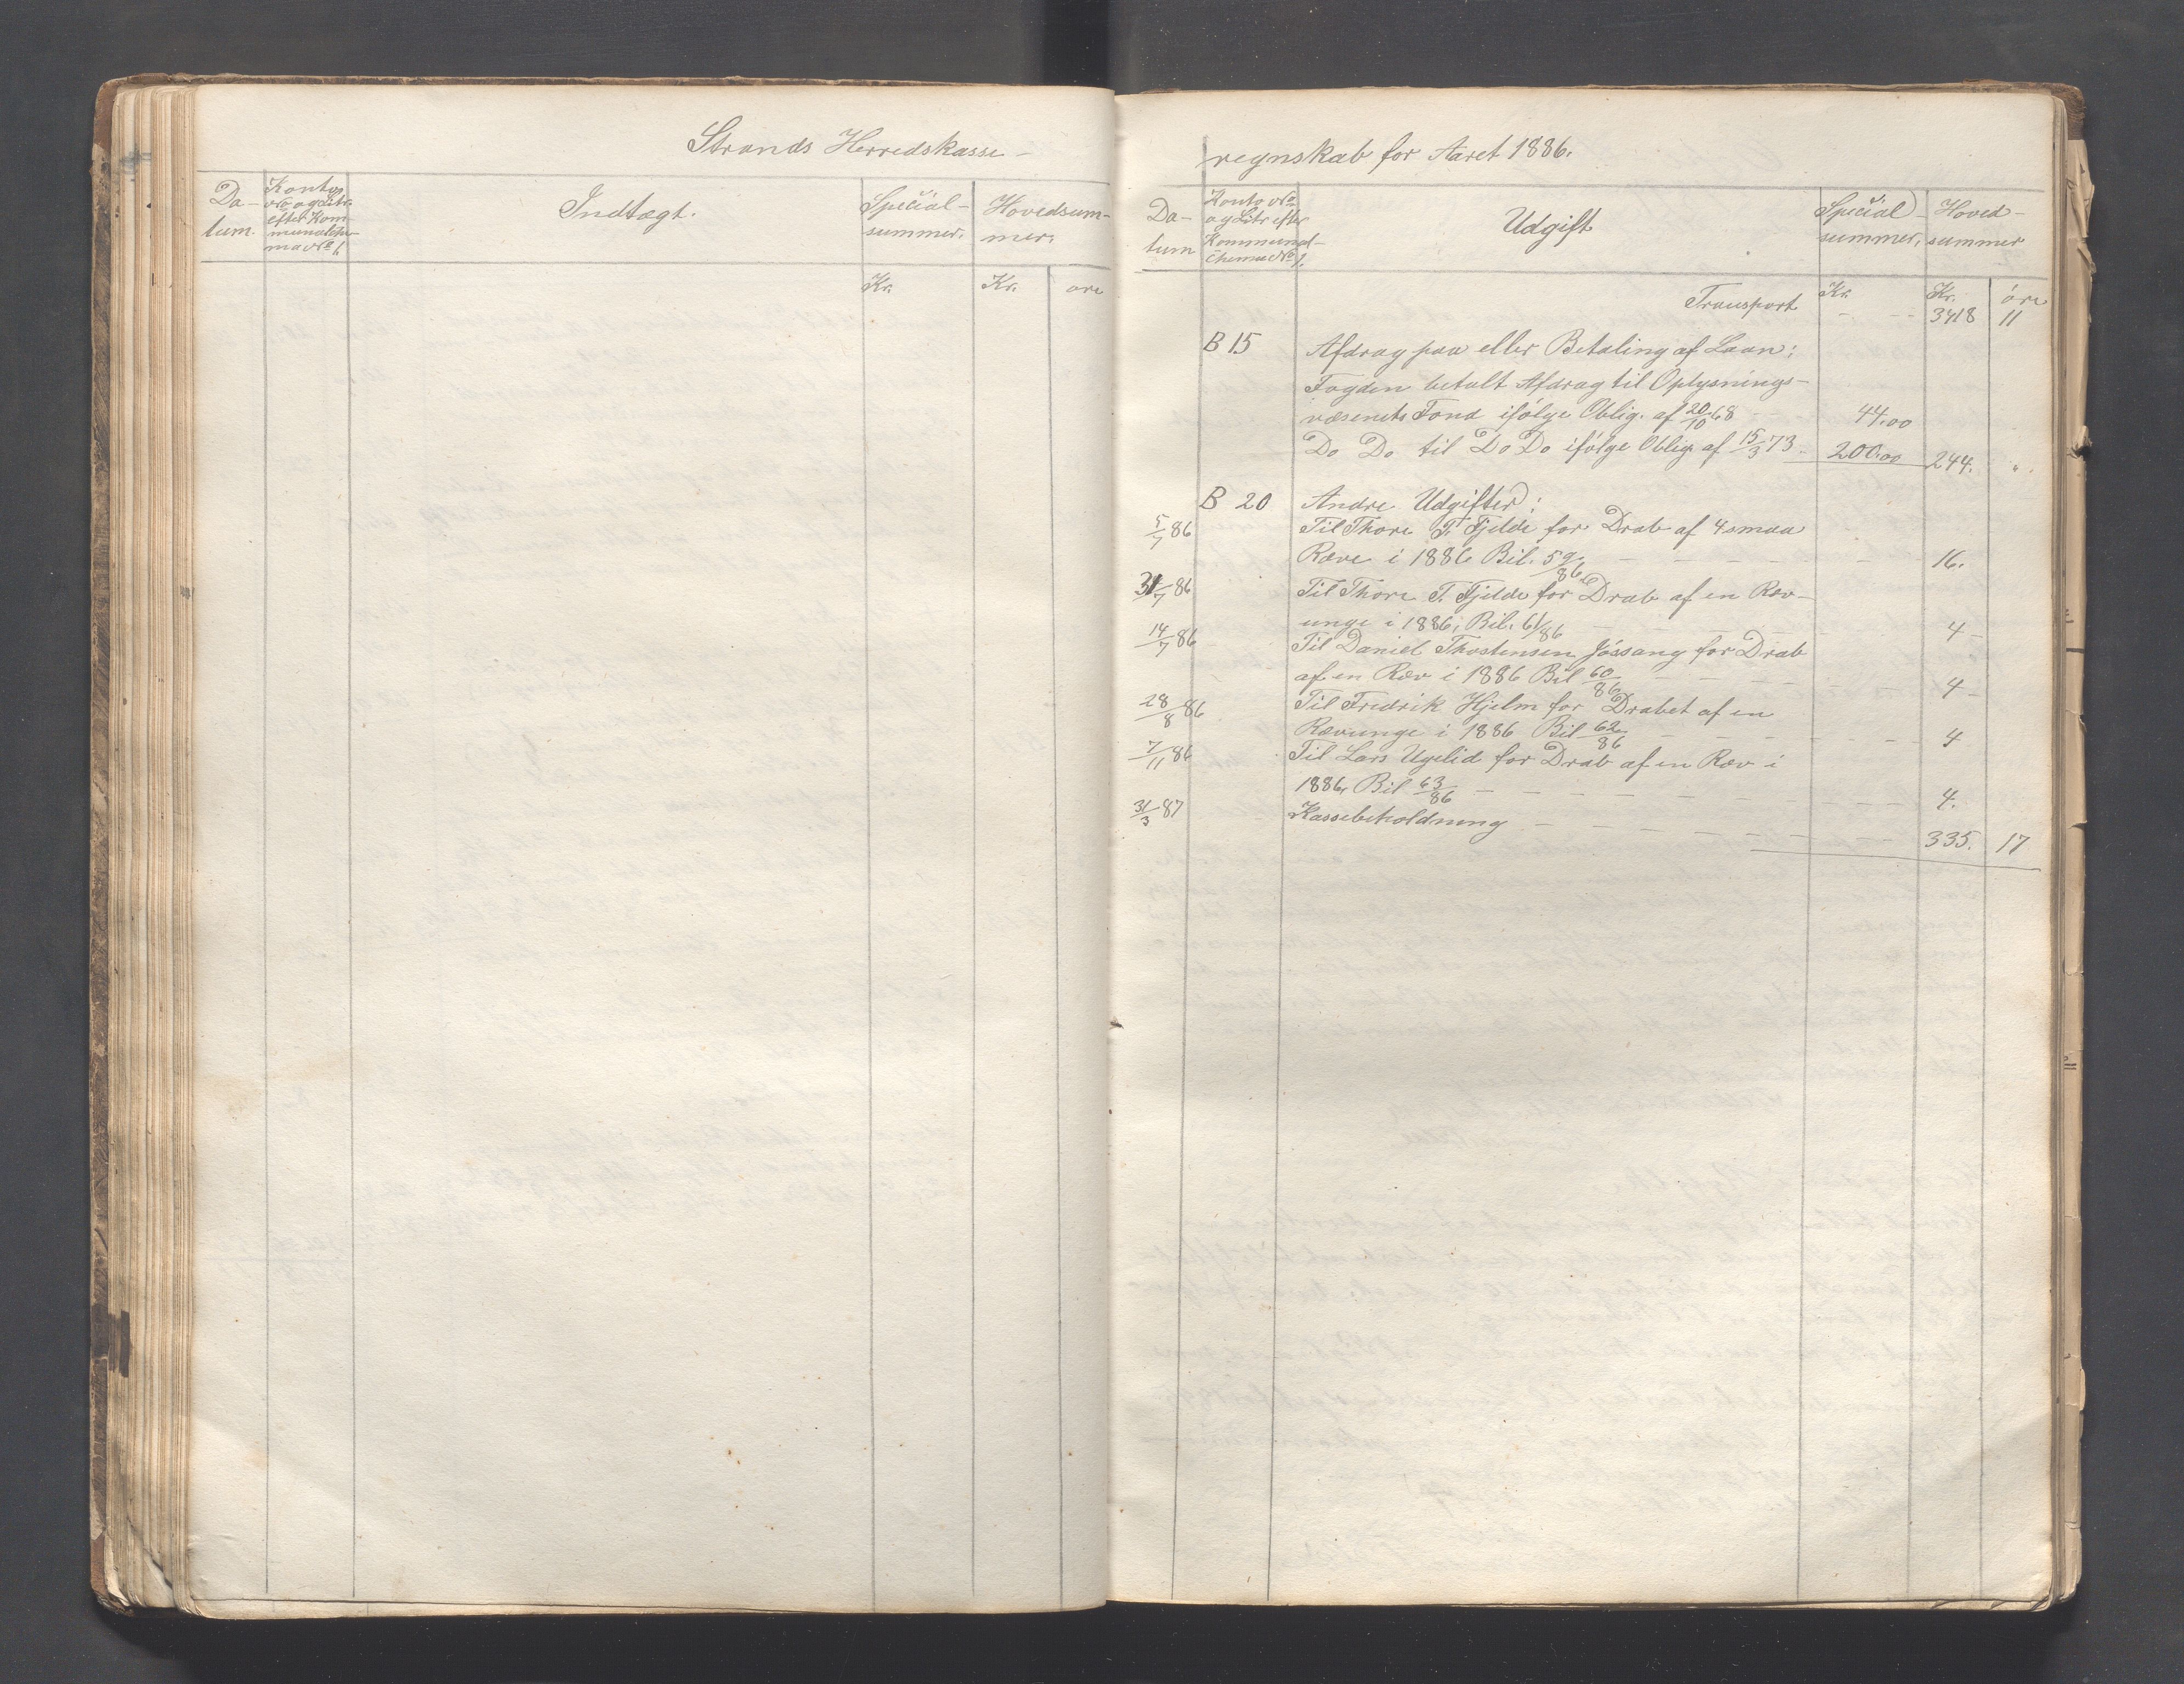 Strands Herredskasse-
Da-
tum.
Kontos
No og Litr.
efter Kom-
munalche-
ma No 1.
Indtægt.
Special-
summer.
Hovedsum-
mer.
Kr.
Kr.
øre
regnskab for Aaret 1886.
Da-
tum
Konto No
og Litr efter
Kommunal-
chema No 1.
Udgift
Special-
summer.
Hoved-
summer
Kr.
Kr.
øre
Transport - - - 3418 11
B 15 Afdrag paa eller Betaling af Laan:
Fogden betalt Afdrag til Oplysnings-
væsenets Fond ifølge Oblig. af 20/10 68 44.00
Do Do til Do Do ifølge Oblig. af 15/3 73 - 200.00 244. "
B 20 Andre Udgifter:
5/7 86 Til Thore T. Fjelde for Drab af 4 smaa
Ræve i 1886 Bil. 59/86 - - - - - - 16.
31/7 86 Til Thore T. Fjelde for Drab af en Ræv-
unge i 1886, Bil. 61/86 - - - - - - 4 -
14/7 86 Til Daniel Thostensen Jössang for Drab
af en Ræv i 1886 Bil 60/86 - - - - - - 4 -
28/8 86 Til Fredrik Hjelm for Drabet af en
Rævunge i 1886 Bil 62/86 - - - - - - 4
7/11 86 Til Lars Ugelid for Drab af en Ræv i
1886, Bil 63/86 - - - - - - 4.
31/3 87 Kassebeholdning - - - - - - 335. 17